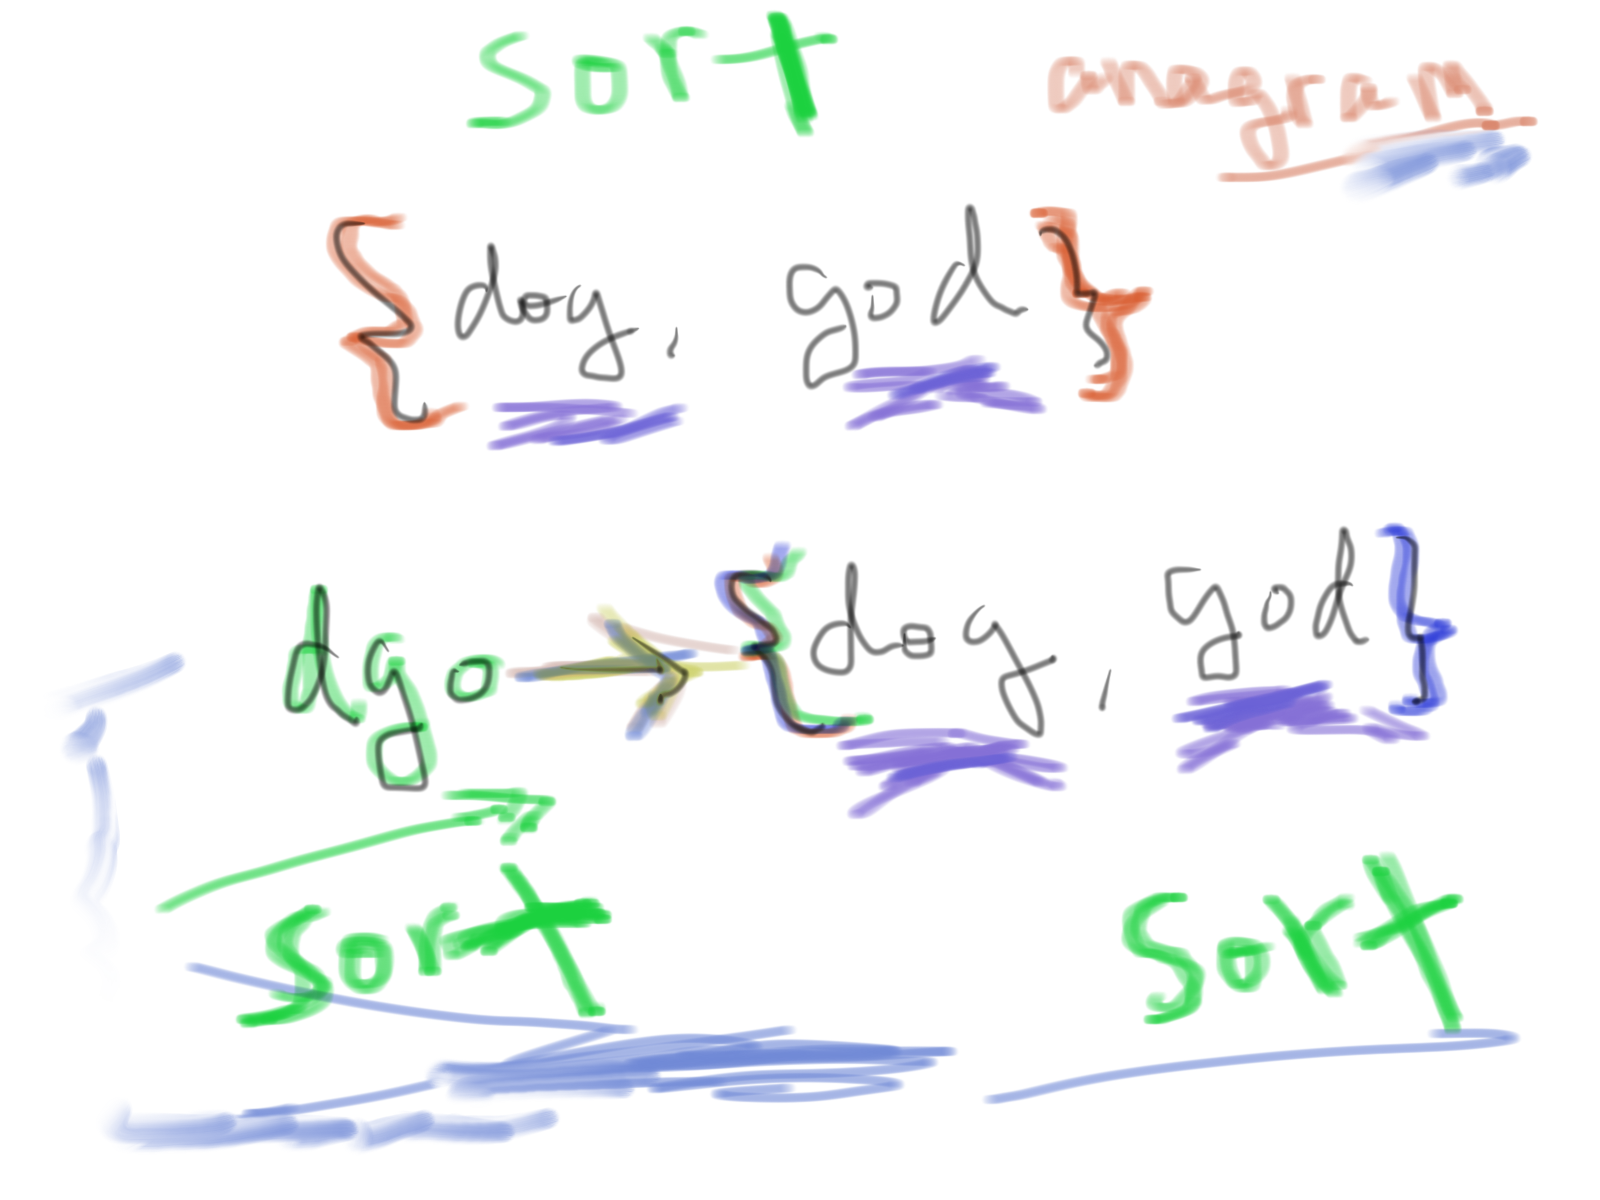 sort anagram
{dog, god}
dgo → {dog, god}
sort sort